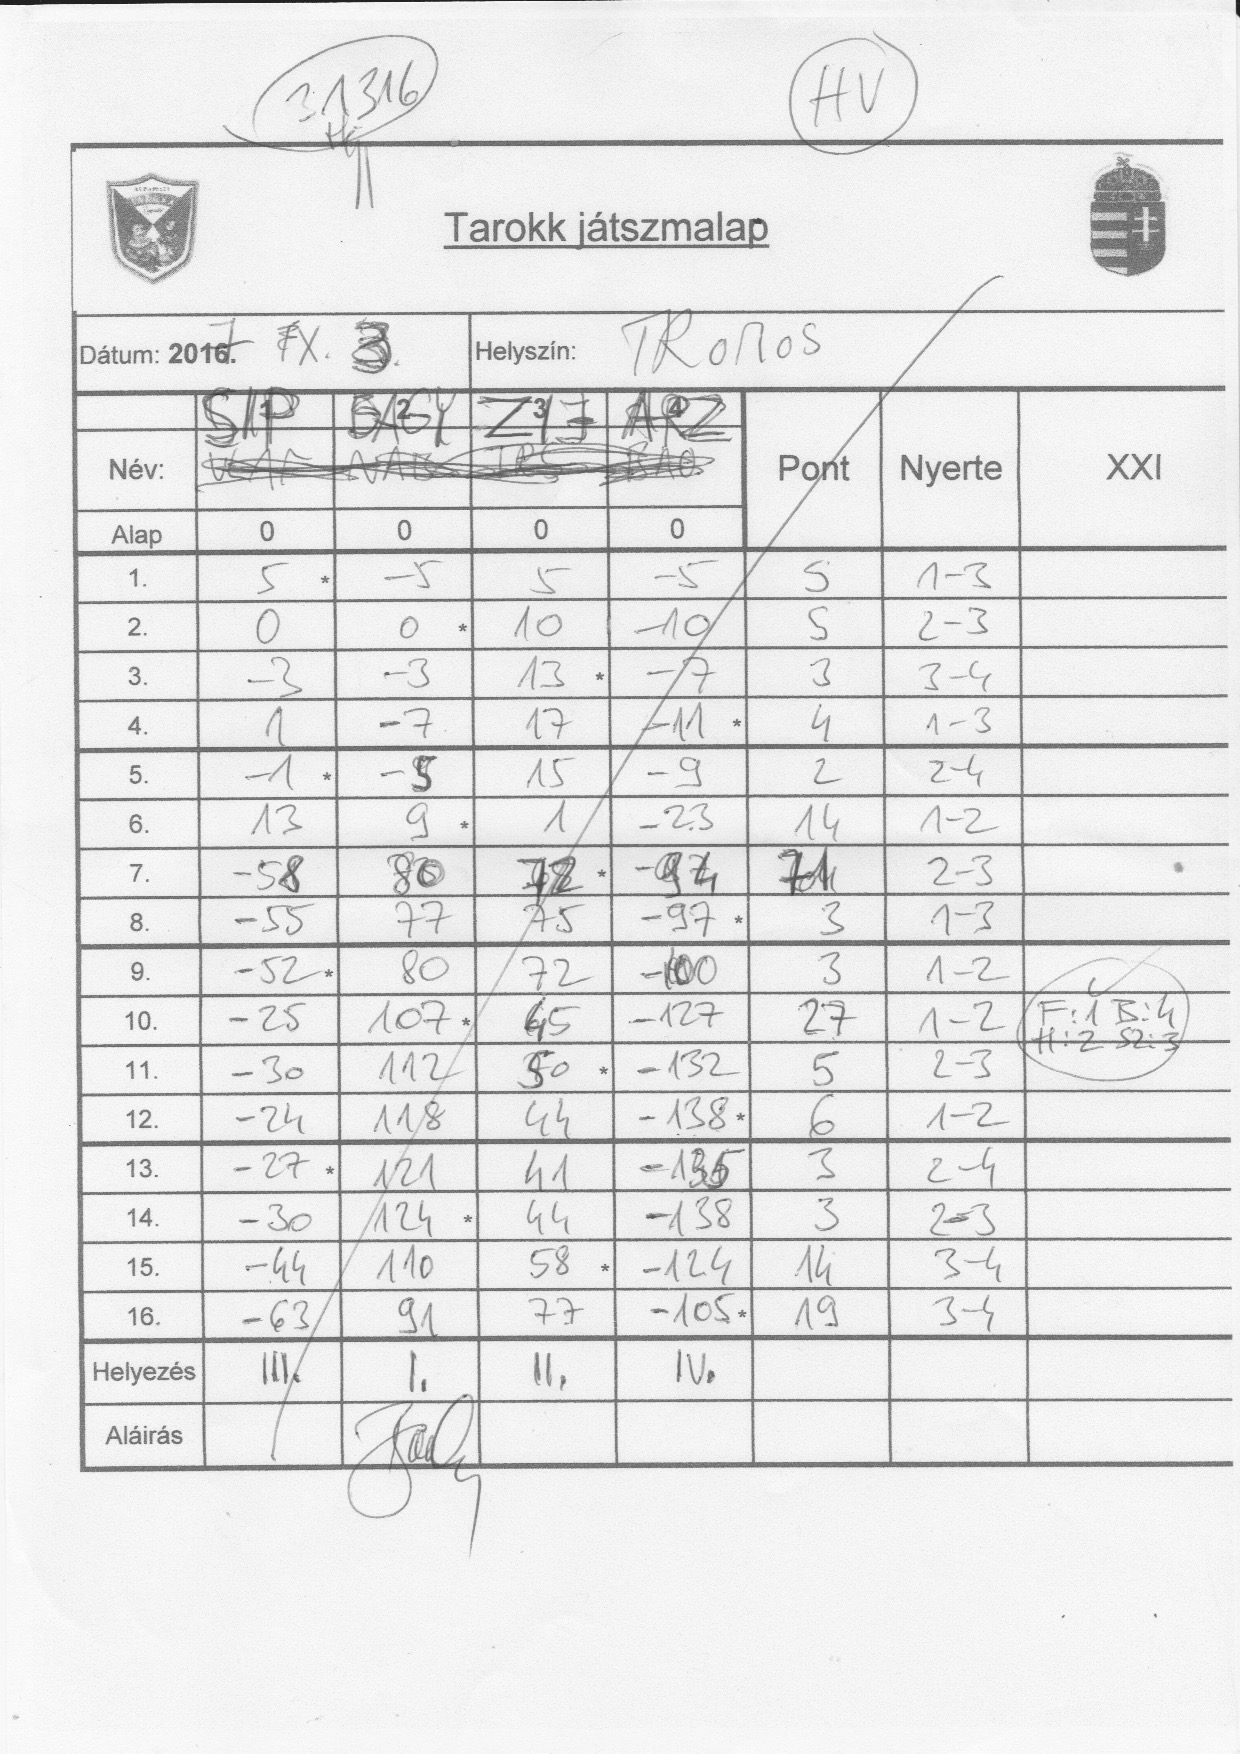 31316
HV
Tarokk játszmalap
Dátum: 2016. 7 IX. 3. Helyszín: TROMOS
1 2 3 4
SIP BAGY ZIJ ARZ
Név: Pont Nyerte XXI
Alap 0 0 0 0
1. 5 * -5 5 -5 5 1-3
2. 0 0 * 10 -10 5 2-3
3. -3 -3 13 * -7 3 3-4
4. 1 -7 17 -11 * 4 1-3
5. -1 * -5 15 -9 2 2-4
6. 13 9 * 1 -23 14 1-2
7. -58 80 72 * -94 71 2-3
8. -55 77 75 -97 * 3 1-3
9. -52 * 80 72 -100 3 1-2
10. -25 107 * 45 -127 27 1-2 F:1 B:4
H:2 SZ:3
11. -30 112 50 * -132 5 2-3
12. -24 118 44 -138 * 6 1-2
13. -27 * 121 41 -135 3 2-4
14. -30 124 * 44 -138 3 2-3
15. -44 110 58 * -124 14 3-4
16. -63 91 77 -105 * 19 3-4
Helyezés III. I. II. IV.
Aláírás